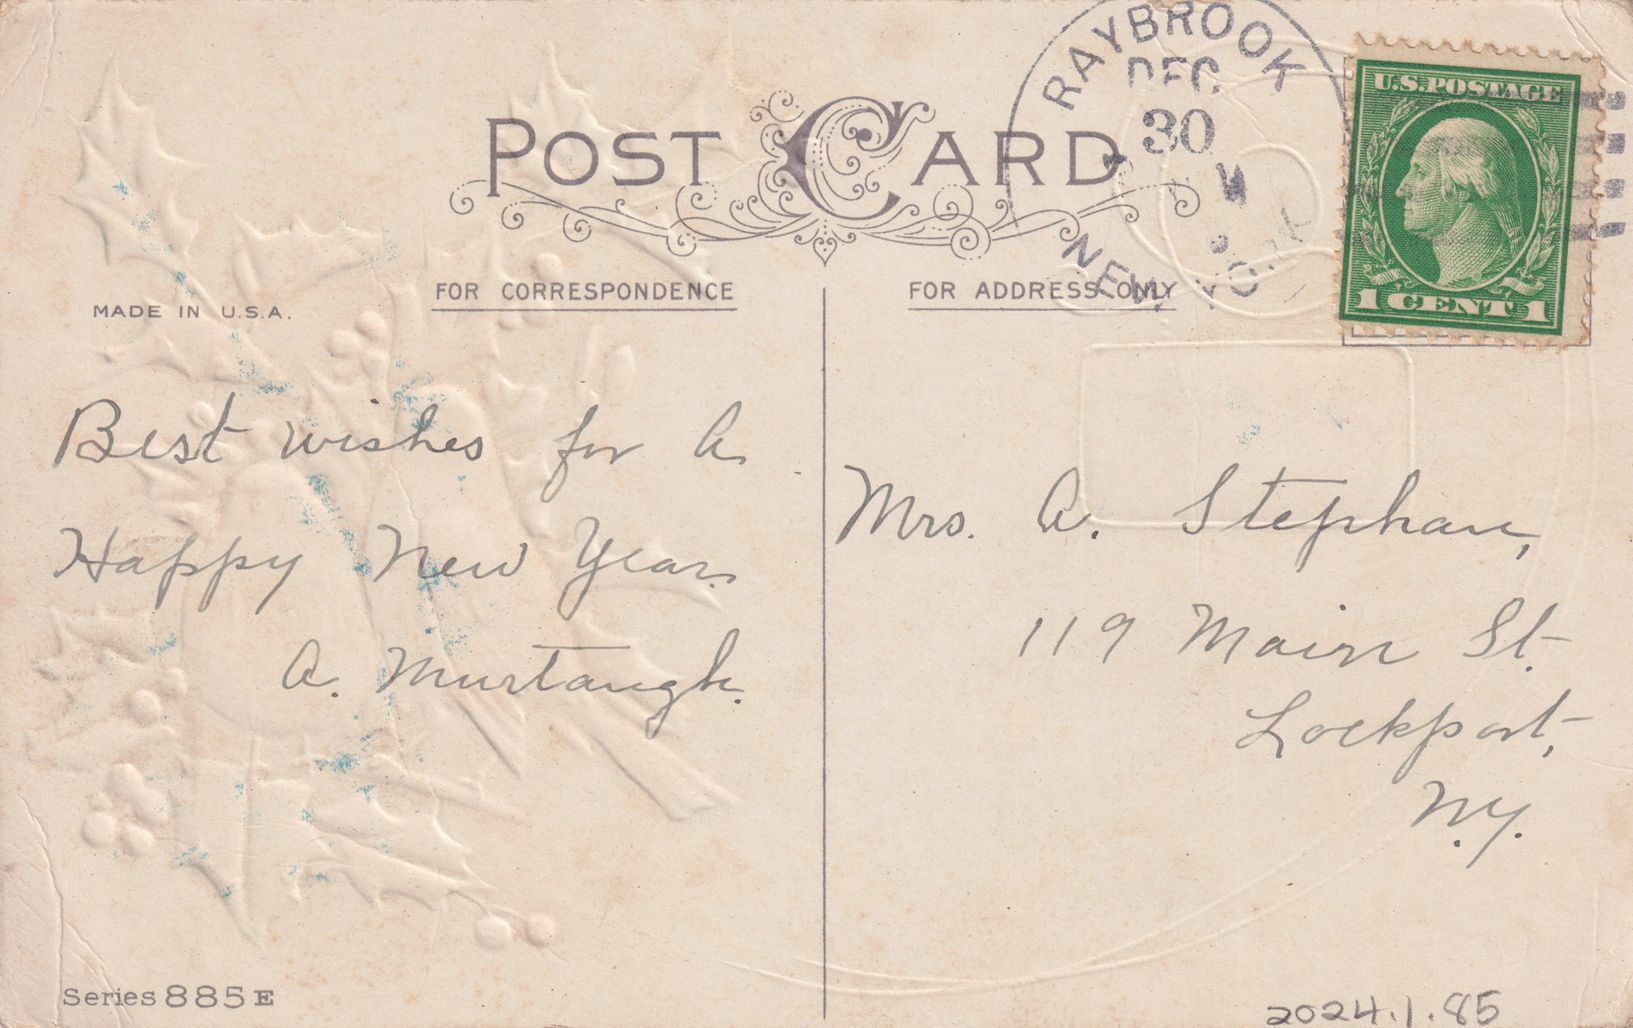 RAYBROOK
DEC
30
NEW YORK
U.S. POSTAGE
1 CENT 1
POST CARD
FOR CORRESPONDENCE
FOR ADDRESS ONLY
MADE IN U.S.A.
Best wishes for a
Happy New Year.
A. Murtaugh.
Mrs. A. Stephan,
119 Main St.
Lockport,
N.Y.
Series 885 E
2024.1.85